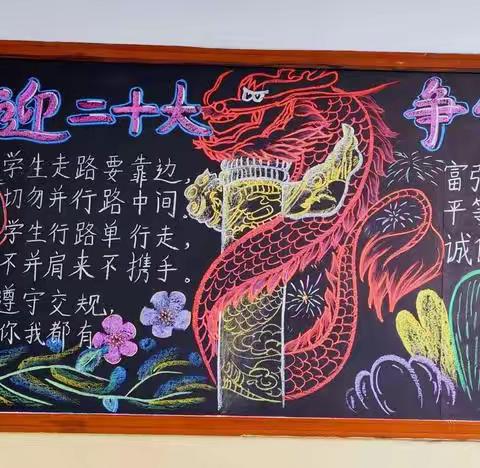 迎二十大
争
学生走路要靠边，
切勿并行路中间，
学生行路单行走，
不并肩来不携手。
遵守交规，
你我都有
富强
平等
诚